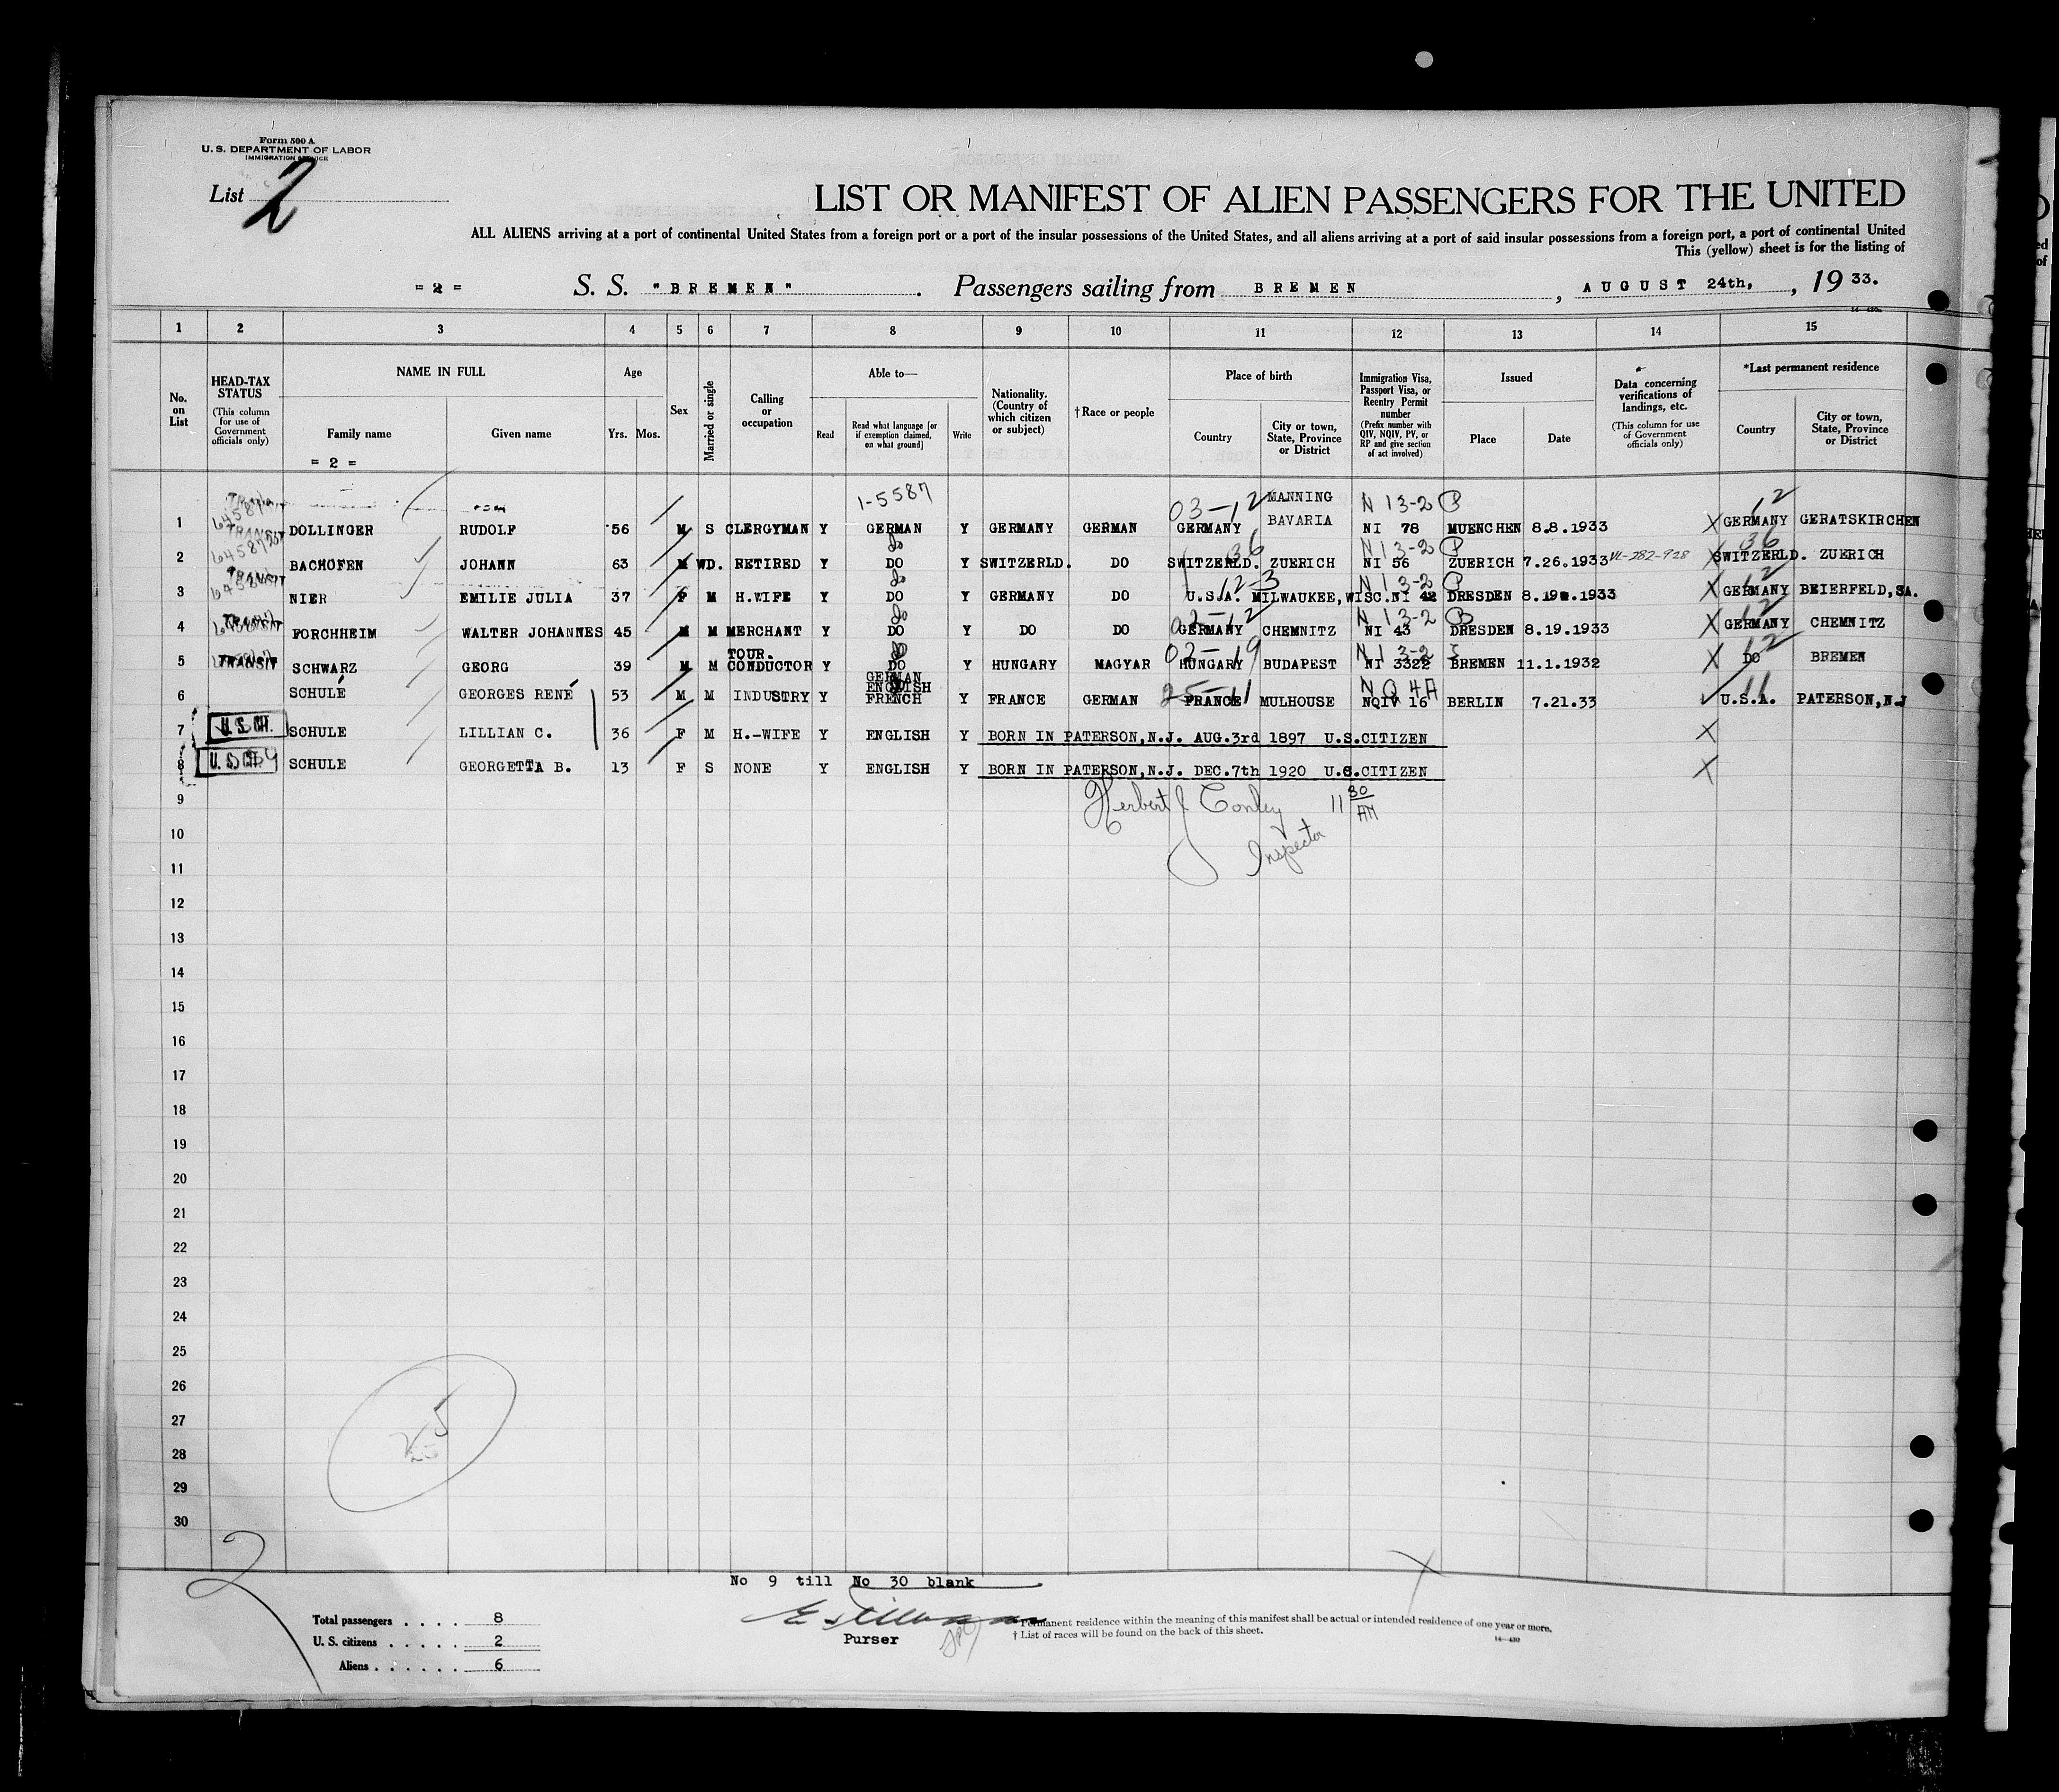 Form 500 A
U. S. DEPARTMENT OF LABOR
IMMIGRATION SERVICE
List 2
LIST OR MANIFEST OF ALIEN PASSENGERS FOR THE UNITED
ALL ALIENS arriving at a port of continental United States from a foreign port or a port of the insular possessions of the United States, and all aliens arriving at a port of said insular possessions from a foreign port, a port of continental United
This (yellow) sheet is for the listing of
= 2 = S. S. "BREMEN" . Passengers sailing from BREMEN , AUGUST 24th, , 19 33.
1 2 3 4 5 6 7 8 9 10 11 12 13 14 15
No. on List
HEAD-TAX STATUS (This column for use of Government officials only)
NAME IN FULL
Family name
Given name
= 2 =
Age
Yrs. Mos.
Sex
Married or single
Calling or occupation
Able to—
Read
Read what language [or if exemption claimed, on what ground]
Write
Nationality. (Country of which citizen or subject)
† Race or people
Place of birth
Country
City or town, State, Province or District
Immigration Visa, Passport Visa, or Reentry Permit number (Prefix number with QIV, NQIV, PV, or RP and give section of act involved)
Issued
Place
Date
Data concerning verifications of landings, etc. (This column for use of Government officials only)
*Last permanent residence
Country
City or town, State, Province or District
1-5587 03-12 MANNING N 13-2 P 12
1 TRANSIT DOLLINGER RUDOLF 56 M S CLERGYMAN Y GERMAN Y GERMANY GERMAN GERMANY BAVARIA NI 78 MUENCHEN 8.8.1933 X GERMANY GERATSKIRCHEN
do 36 N 13-2 P 36
2 BACHOFEN JOHANN 63 M WD. RETIRED Y DO Y SWITZERLD. DO SWITZERLD. ZUERICH NI 56 ZUERICH 7.26.1933 VL-282-928 X SWITZERLD. ZUERICH
TRANSIT do 12-3 N 13-2 P 12
3 NIER EMILIE JULIA 37 F M H.WIFE Y DO Y GERMANY DO U.S.A. MILWAUKEE,WISC. NI 42 DRESDEN 8.19.1933 X GERMANY BEIERFELD,SA.
do 02-12 N 13-2 B 12
4 FORCHHEIM WALTER JOHANNES 45 M M MERCHANT Y DO Y DO DO GERMANY CHEMNITZ NI 43 DRESDEN 8.19.1933 X GERMANY CHEMNITZ
TOUR. do 02-19 N 13-2 12
5 TRANSIT SCHWARZ GEORG 39 M M CONDUCTOR Y DO Y HUNGARY MAGYAR HUNGARY BUDAPEST NI 3322 BREMEN 11.1.1932 X DO BREMEN
GERMAN
ENGLISH 25-11 NQ 4A 11
6 SCHULÉ GEORGES RENÉ 53 M M INDUSTRY Y FRENCH Y FRANCE GERMAN FRANCE MULHOUSE NQIV 16 BERLIN 7.21.33 U.S.A. PATERSON,N.J
7 U.S. CIT. SCHULE LILLIAN C. 36 F M H.-WIFE Y ENGLISH Y BORN IN PATERSON,N.J. AUG.3rd 1897 U.S.CITIZEN X
8 U.S. CIT. SCHULE GEORGETTA B. 13 F S NONE Y ENGLISH Y BORN IN PATERSON,N.J. DEC.7th 1920 U.S.CITIZEN X
9 Herbert J Conley 11 30 AM
10 Inspector
11
12
13
14
15
16
17
18
19
20
21
22
23
24
25
26
27
28
29
30
2
No 9 till No 30 blank
Total passengers . . . . 8
U. S. citizens . . . . . 2
Aliens . . . . . . 6
Purser
* Permanent residence within the meaning of this manifest shall be actual or intended residence of one year or more.
† List of races will be found on the back of this sheet.
14—430